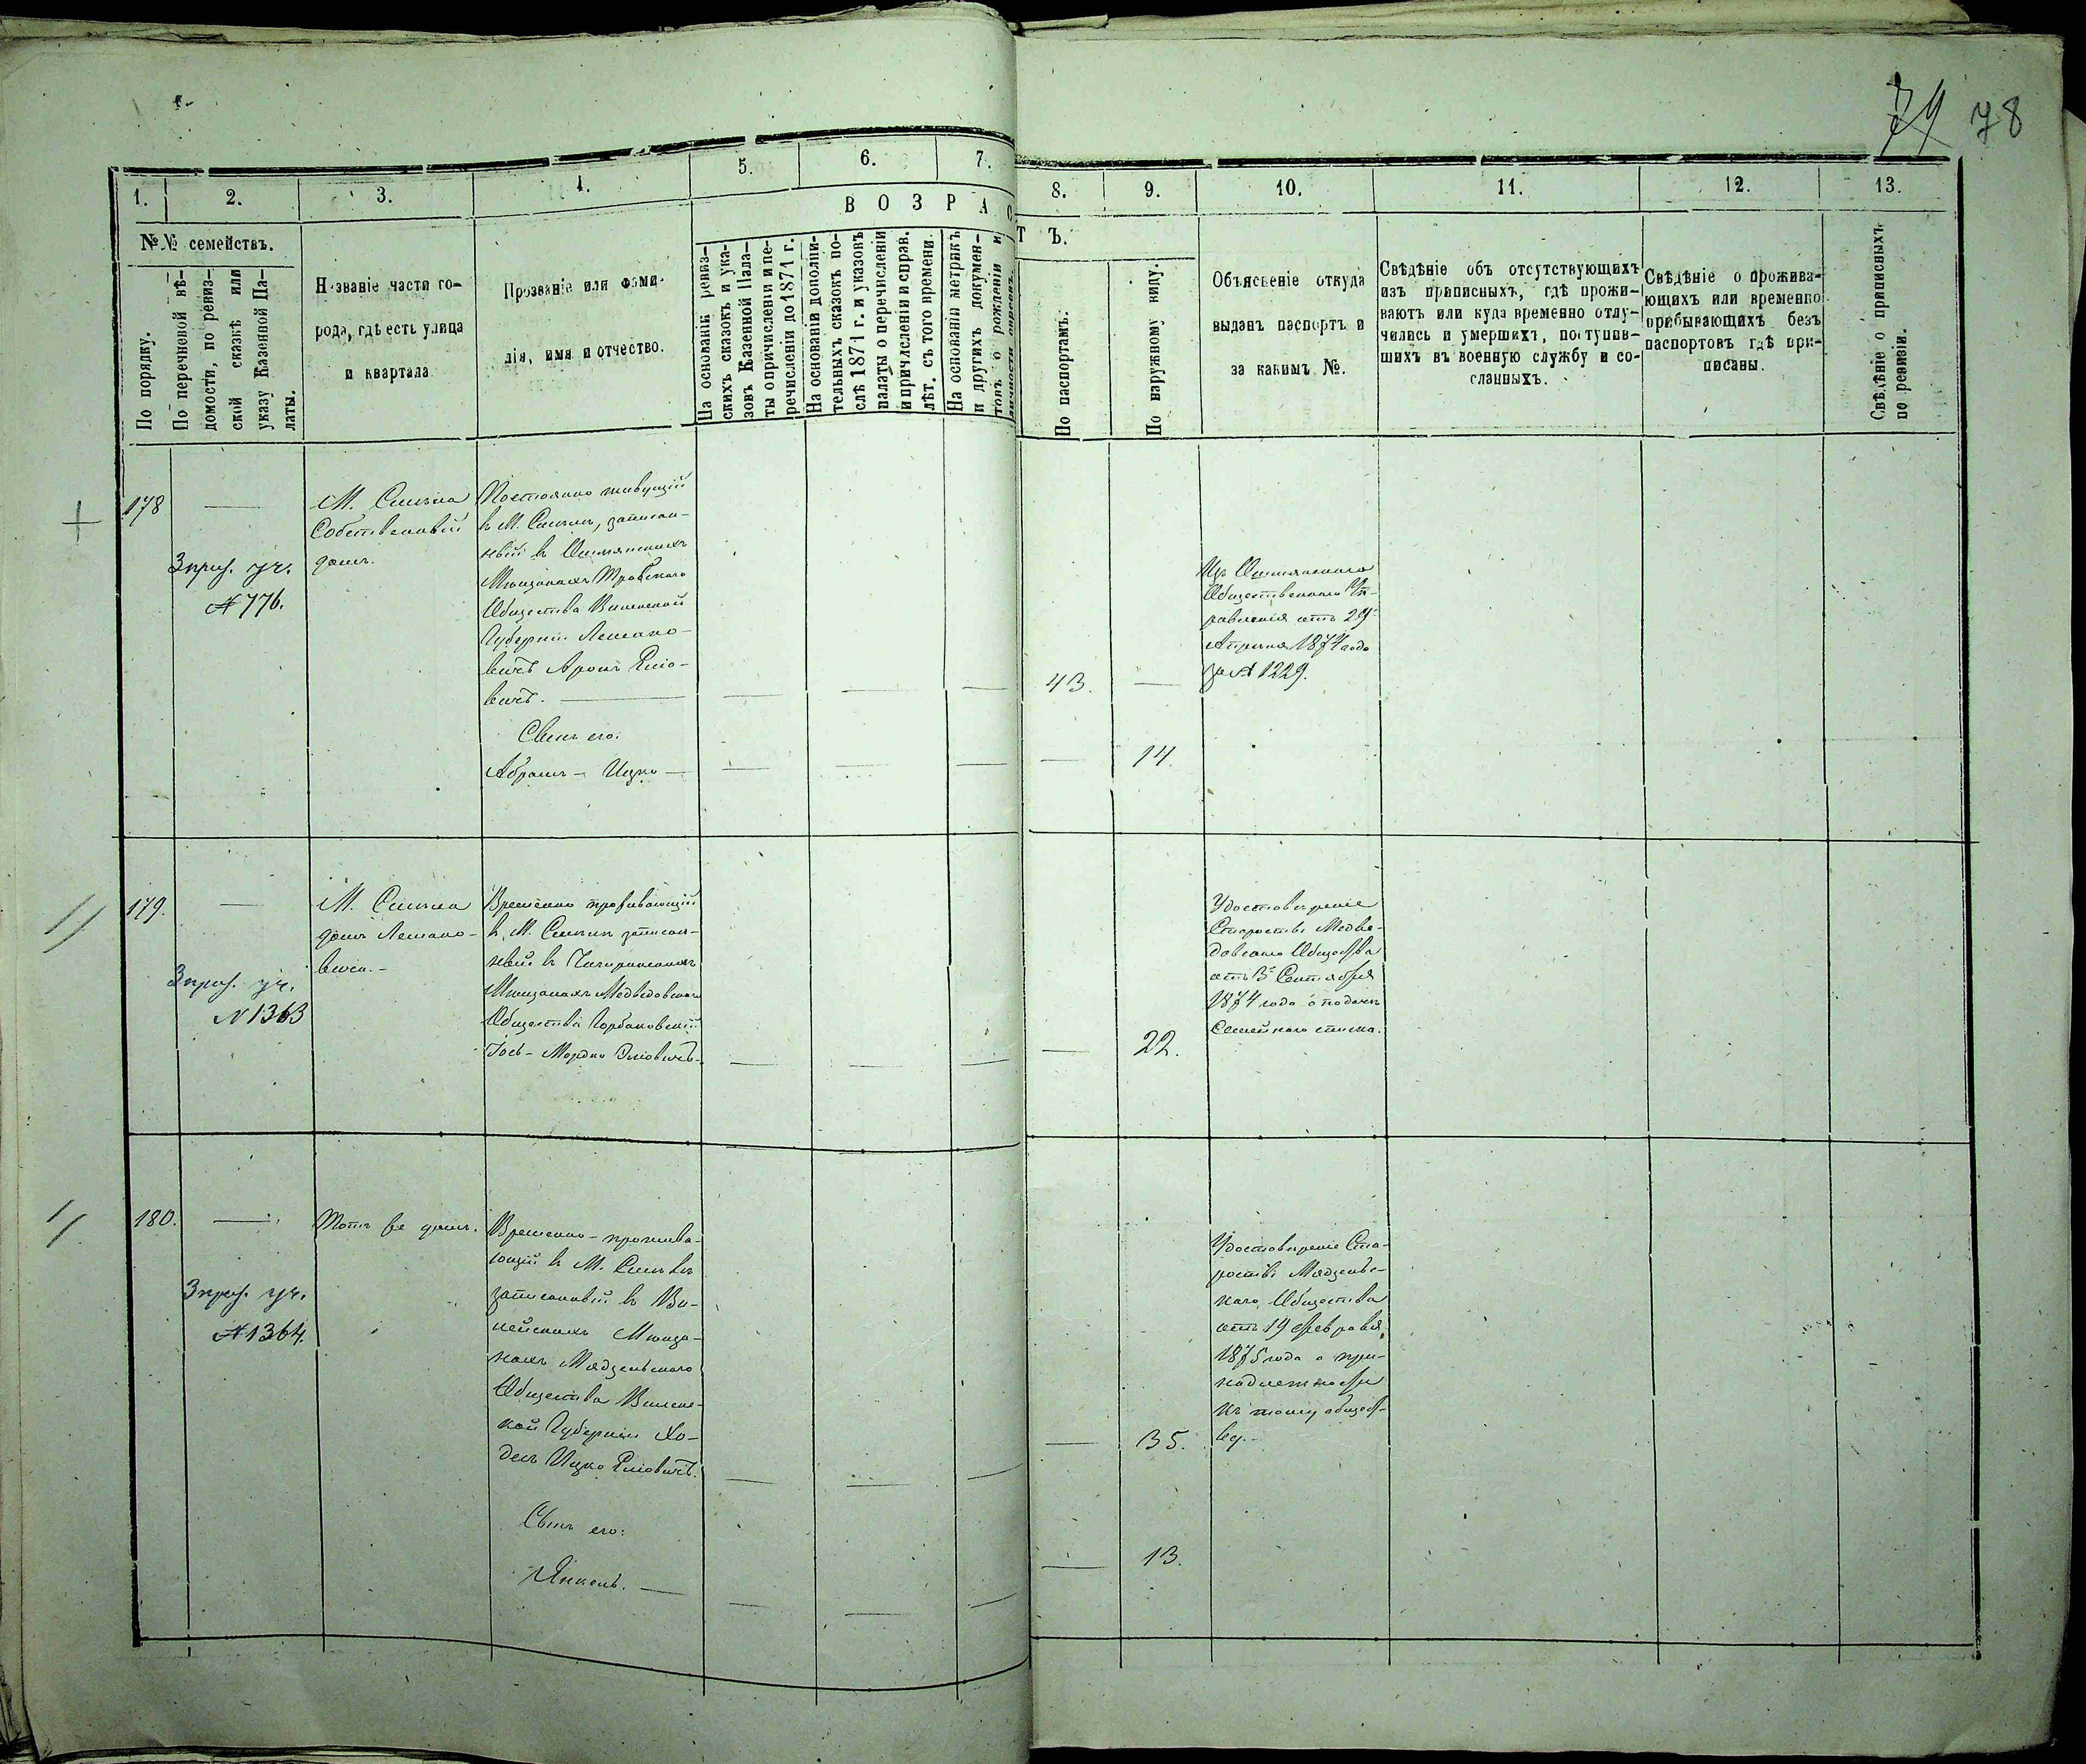 79 78
1. 2. 3. 4. 5. 6. 7. 8. 9. 10. 11. 12. 13.
№№ семействъ.
По порядку.
По перечневой вѣ-
домости, по ревиз-
ской сказкѣ или
указу Казенной Па-
латы.
Названіе части го-
рода, гдѣ есть улица
и квартала
Прозваніе или фами-
лія, имя и отчество.
ВОЗРАСТЪ.
На основаніи ревиз-
скихъ сказокъ и ука-
зовъ Казенной Пала-
ты о причисленіи и пе-
речисленіи до 1871 г.
На основаніи дополни-
тельныхъ сказокъ по-
слѣ 1871 г. и указовъ
палаты о перечисленіи
и причисленіи и справ.
лѣт. съ того времени.
На основаніи метрикъ
и другихъ докумен-
товъ о рожденіи и
По паспортамъ.
По наружному виду.
Объясненіе откуда
выданъ паспортъ и
за какимъ №.
Свѣдѣніе объ отсутствующихъ
изъ приписныхъ, гдѣ прожи-
ваютъ или куда временно отлу-
чились и умершихъ, поступив-
шихъ въ военную службу и со-
сланныхъ.
Свѣдѣніе о прожива-
ющихъ или временно
прибывающихъ безъ
паспортовъ гдѣ при-
писаны.
Свѣдѣніе о приписныхъ
по ревизіи.
178
3 приз. уч.
№ 776.
М. Смѣла
Собственный
домъ.
Постоянно живущій
въ М. Смѣлѣ, записан-
ный въ Ошмянскихъ
Мѣщанахъ Трабскаго
Общества Виленской
Губерніи
Аронъ
вичъ.
Сынъ его:
Абрамъ - Ицко
43.
14.
Изъ Ошмянского
Общественного Уп-
равленія отъ 29
Апреля 1874 года
за № 1229.
179.
3 приз. уч.
№ 1363
М. Смѣла
домъ
Временно проживающій
въ М. Смѣлѣ записан-
ный въ Чигиринскихъ
Мѣщанахъ Медведовскаго
Общества Горбаковскій
Іось - Мордко
22.
Удостовѣреніе
Старосты Медве-
довскаго Общества
отъ 3 Сентября
1874 года о подачѣ
Семейнаго списка.
180.
3 приз. уч.
№ 1364.
Тотъ же домъ.
Временно - прожива-
ющій въ М. Смѣлѣ
записанный въ Ви-
лейскихъ Мѣща-
нахъ Мядзельскаго
Общества Виленс-
кой Губерніи Хо-
десъ Ицко
35.
Сынъ его:
Янкель.
13.
Удостовѣреніе Ста-
росты Мядзельс-
каго Общества
отъ 19 Февраля
1875 года о при-
надлежности
къ тому общест-
ву.